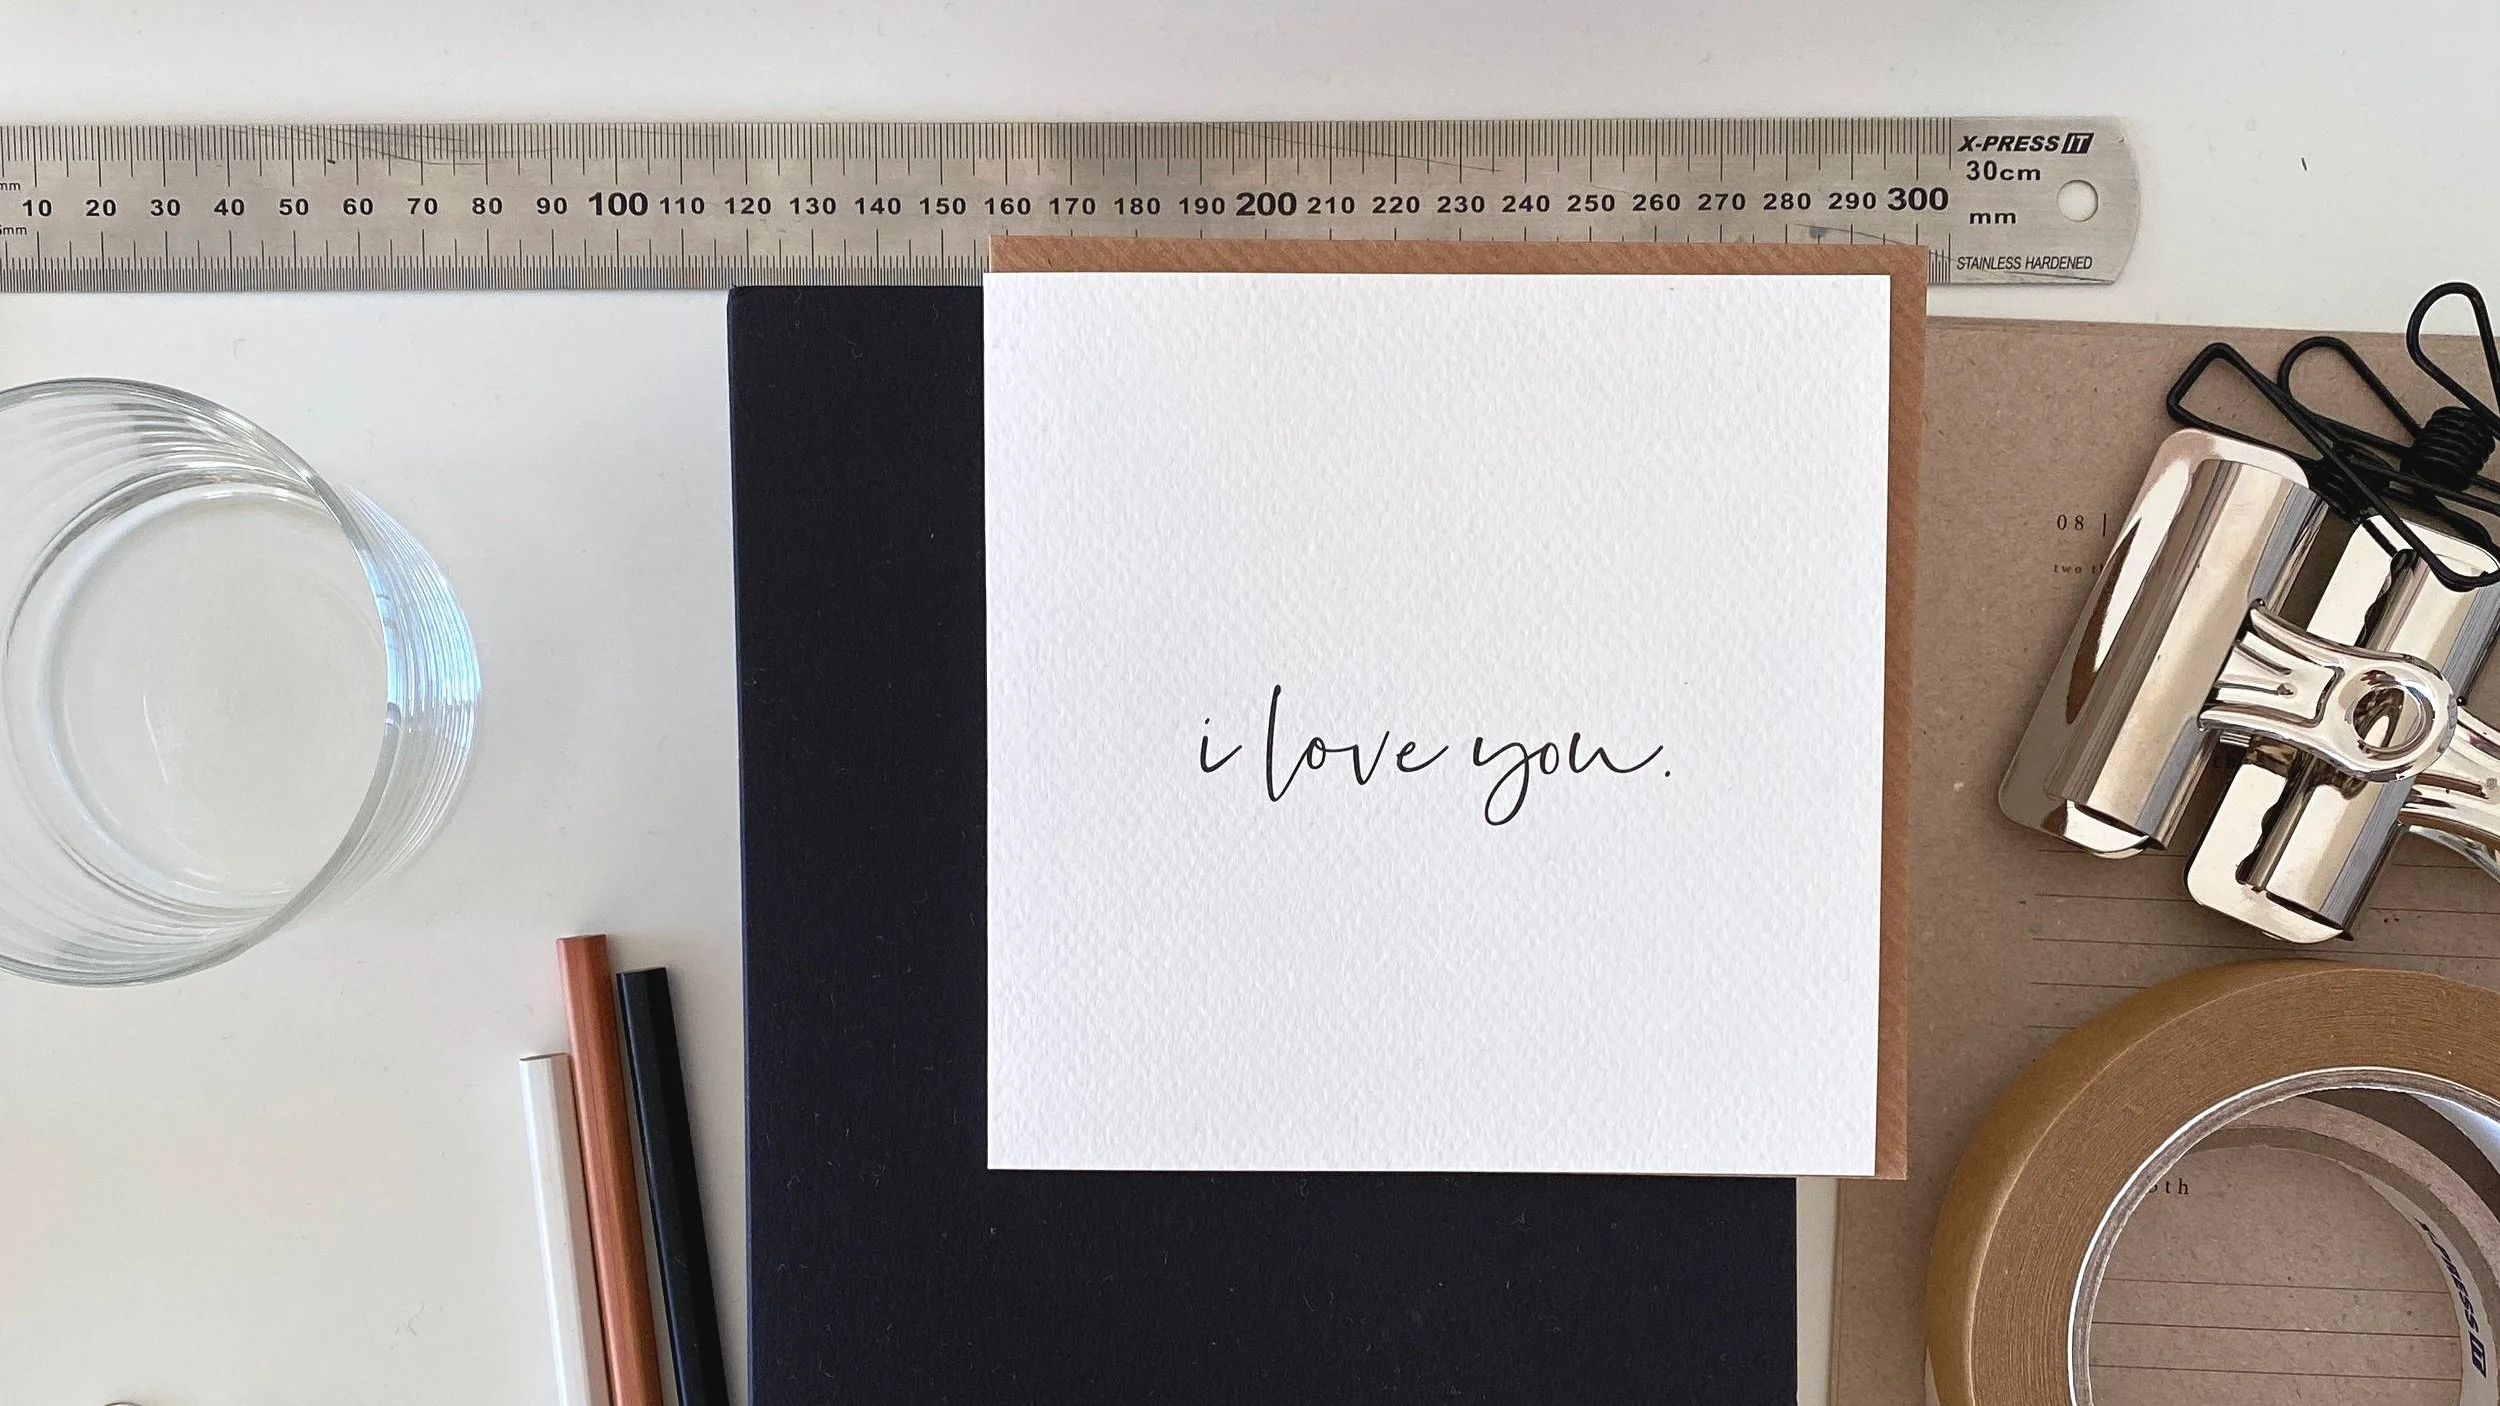 X-PRESS IT
30cm
mm
10 20 30 40 50 60 70 80 90 100 110 120 130 140 150 160 170 180 190 200 210 220 230 240 250 260 270 280 290 300
mm
mm
STAINLESS HARDENED
i love you.
08 |
two
th
X-PRESS IT